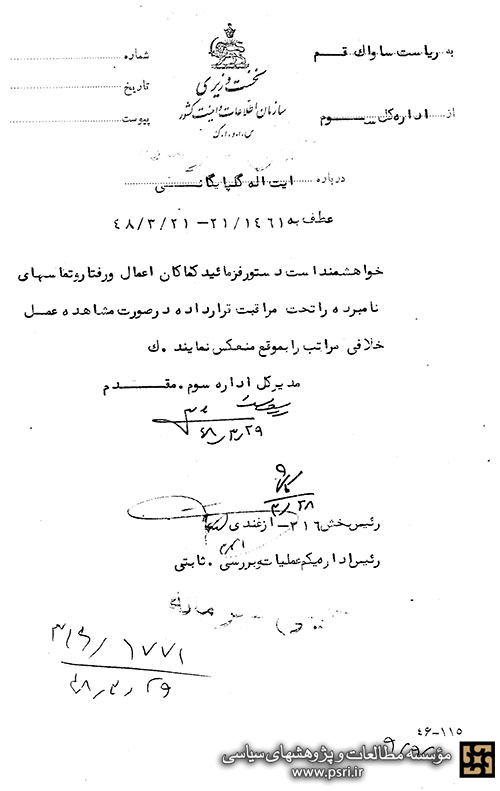 به ریاست ساواک قم
از اداره کل سوم
نخست وزیری
سازمان اطلاعات و امنیت کشور
س.ا.و.ا.ک.
شماره
تاریخ
پیوست
درباره آیت اله گلپایگانی
عطف به ۲۱/۱۴۶۱ – ۴۸/۳/۲۱
خواهشمند است دستور فرمائید کماکان اعمال و رفتار و تماسهای
نامبرده را تحت مراقبت قرار داده در صورت مشاهده عمل
خلافی مراتب را بموقع منعکس نمایند . ک
مدیر کل اداره سوم . مقدم
۴۸/۳/۲۹
۳/۲۸
رئیس بخش ۳۱۶ – ازغندی
رئیس اداره یکم عملیات و بررسی . ثابتی
۳۱۶/۱۷۷۱
۴۸/۳/۲۹
۴۶–۱۱۵
مؤسسه مطالعات و پژوهشهای سیاسی
www.psri.ir